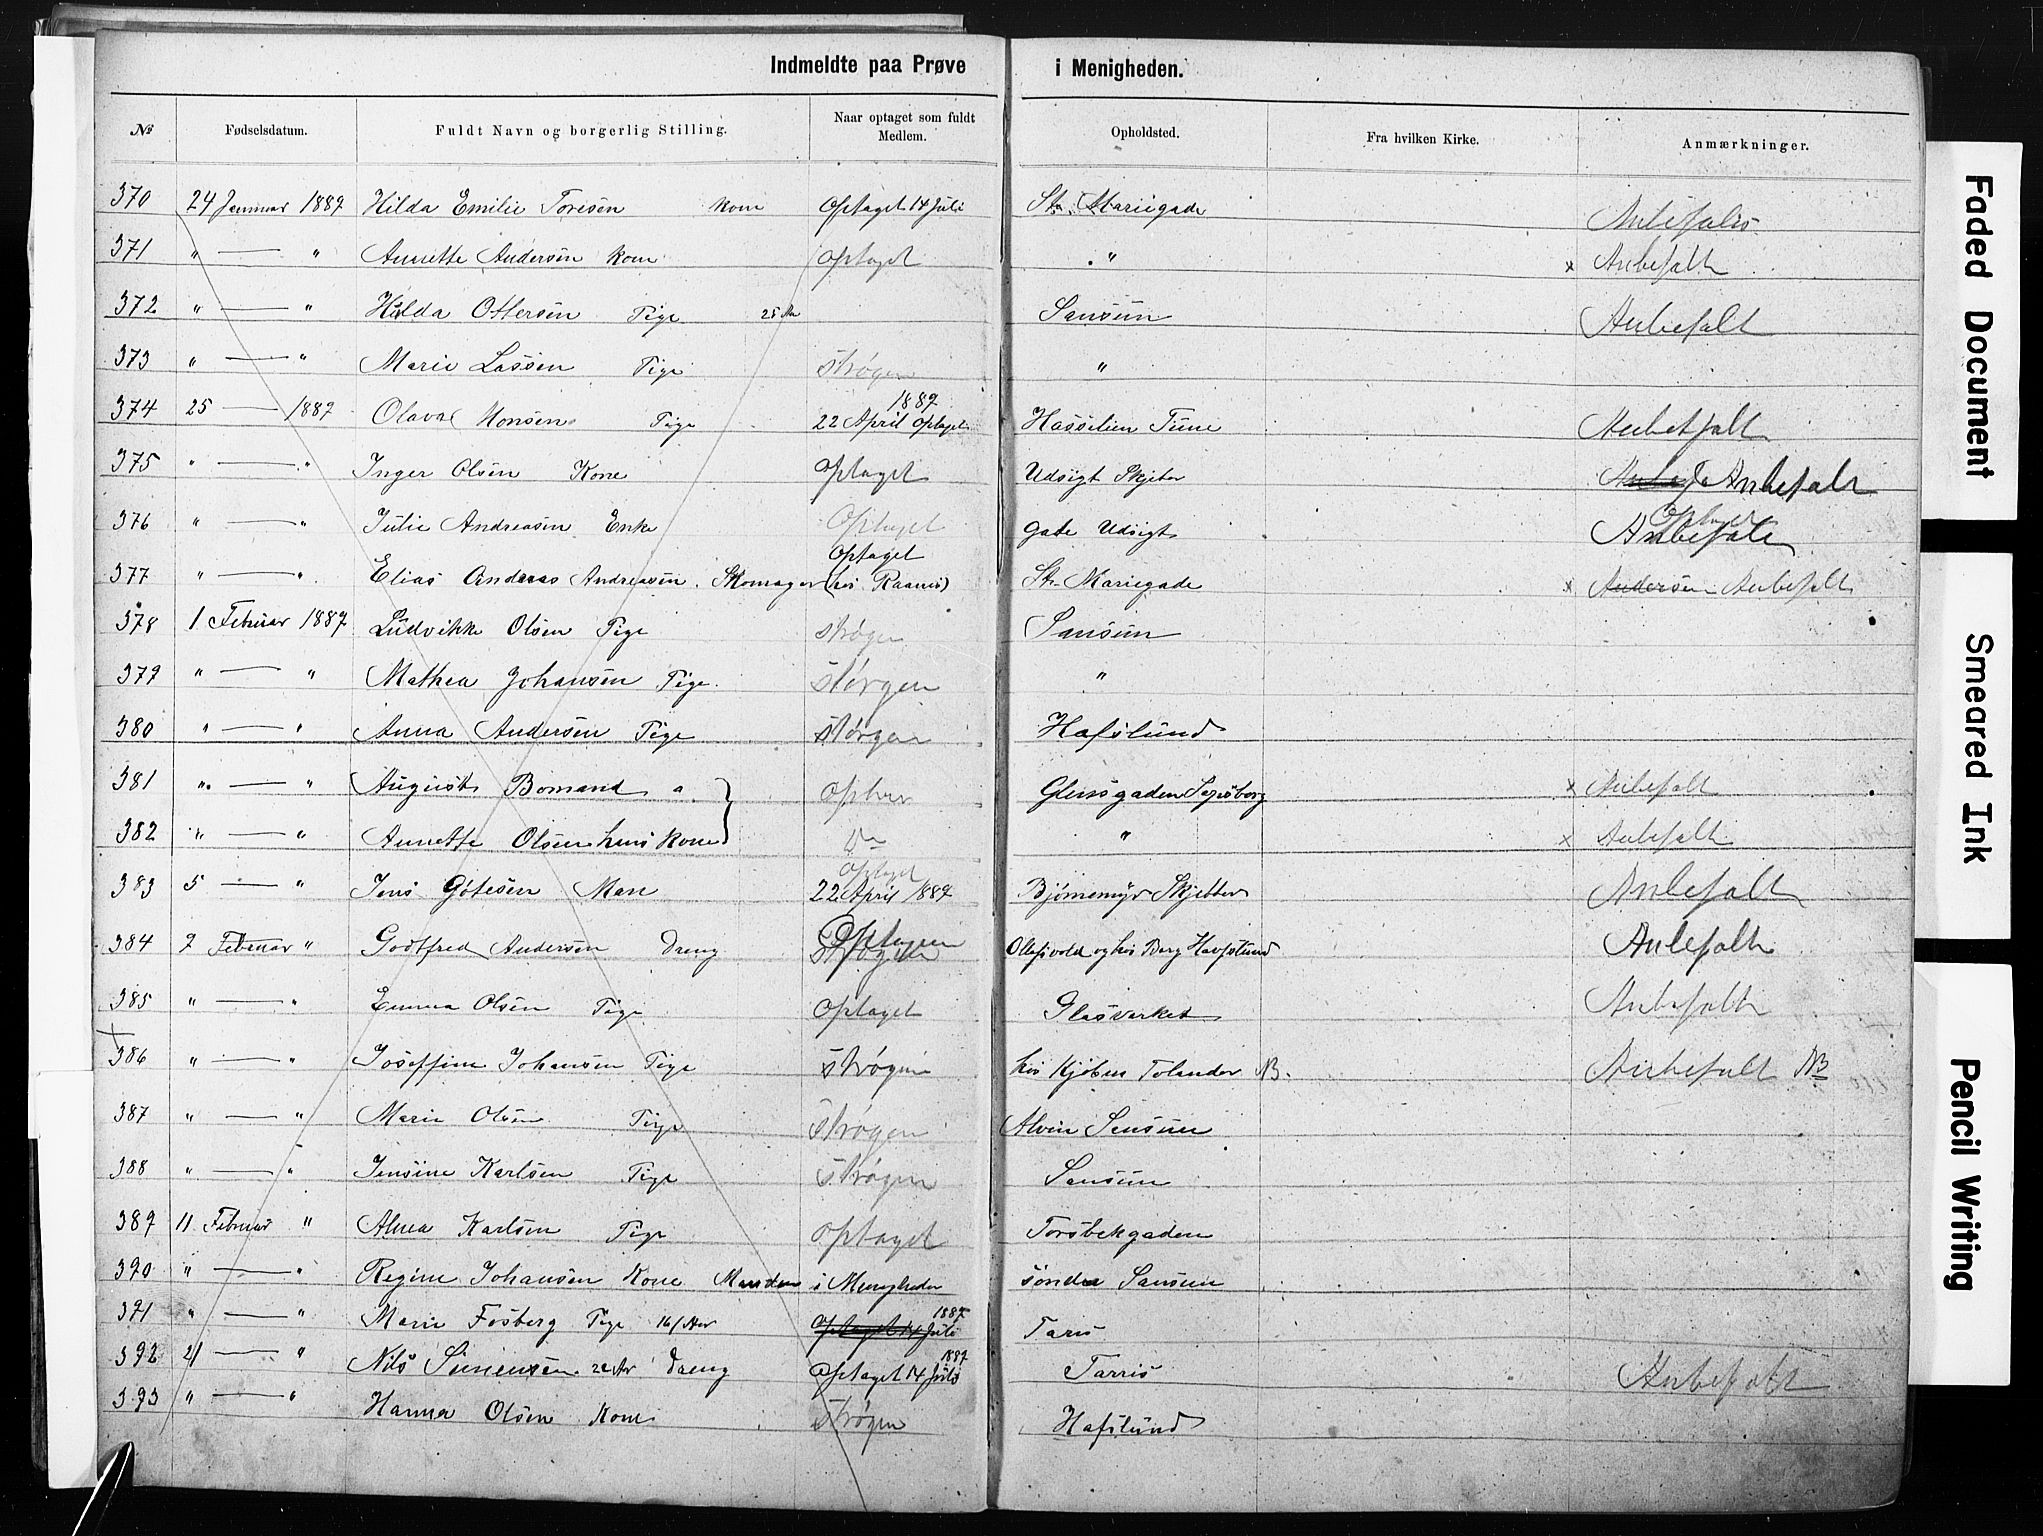 Indmeldte paa Prøve i Menigheden.
№ Fødselsdatum. Fuldt Navn og borgerlig Stilling. Naar optaget som fuldt Medlem. Opholdsted. Fra hvilken Kirke. Anmærkninger.
370 24 Januar 1887 Hilda Emilie Toresen Kone Optaget 14 Juli St. Mariegade Anbefales
371 " — " Annette Andersen Kone Optaget " x Anbefalt
372 " — " Hilda Ottersen Pige 25 Aar Sansun Anbefalt
373 " — " Marie Lassen Pige strøgen "
374 25 — 1887 Olava Monsen Pige 22 April 1887 Optaget Hasselien Tune Anbefalt
375 " — " Inger Olsen Kone Optaget Udsigt Skjeber Anbefalt
376 " — " Julie Andreasen Enke Optaget Gade Udsigt Optaget Anbefalt
377 " — " Elias Andreas Andreasen Skomager Optaget (hos Raanes) St. Mariegade x Andersen Anbefalt
378 1 Februar 1887 Ludvikke Olsen Pige strøgen Sansun
379 " — " Mathea Johansen Pige størgen "
380 " — " Anna Andersen Pige størgen Hafslund
381 " — " August Bomand a Glensgaden Sarpsborg x Anbefalt
382 " — " Annette Olsen hans Kone " x Anbefalt
383 5 — " Jens Gøtesen Man Optaget 22 April 1887 Bjørnemyr Skjebber Anbefalt
384 7 Februar " Godtfred Andersen Dreng Optagen strøgen Ollesivold og hos Berg Havfslund Anbefalt
385 " — " Emma Olsen Pige Optaget Glasverket Anbefalt
386 " — " Joseffine Johansen Pige strøgen hos Kjøbm Tolander NB. Anbefalt NB
387 " — " Marie Olsen Pige strøgen Alvin Sansun
388 " — " Jensine Karlsen Pige strøgen Sansun
389 11 Februar " Alma Karlsen Pige optaget Torsbekgaden
390 " — " Regine Johansen Kone Manden i Menigheden søndre Sansun
391 " — " Marie Fosberg Pige 16 Aar Optaget 14 Juli 1887 Taris
392 21 — " Nils Simensen 22 Aar Dreng Optaget 14 Juli 1887 Tarris Anbefalt
393 " — " Hanna Olsen Kone strøgen Hafslund
Faded Document
Smeared Ink
Pencil Writing